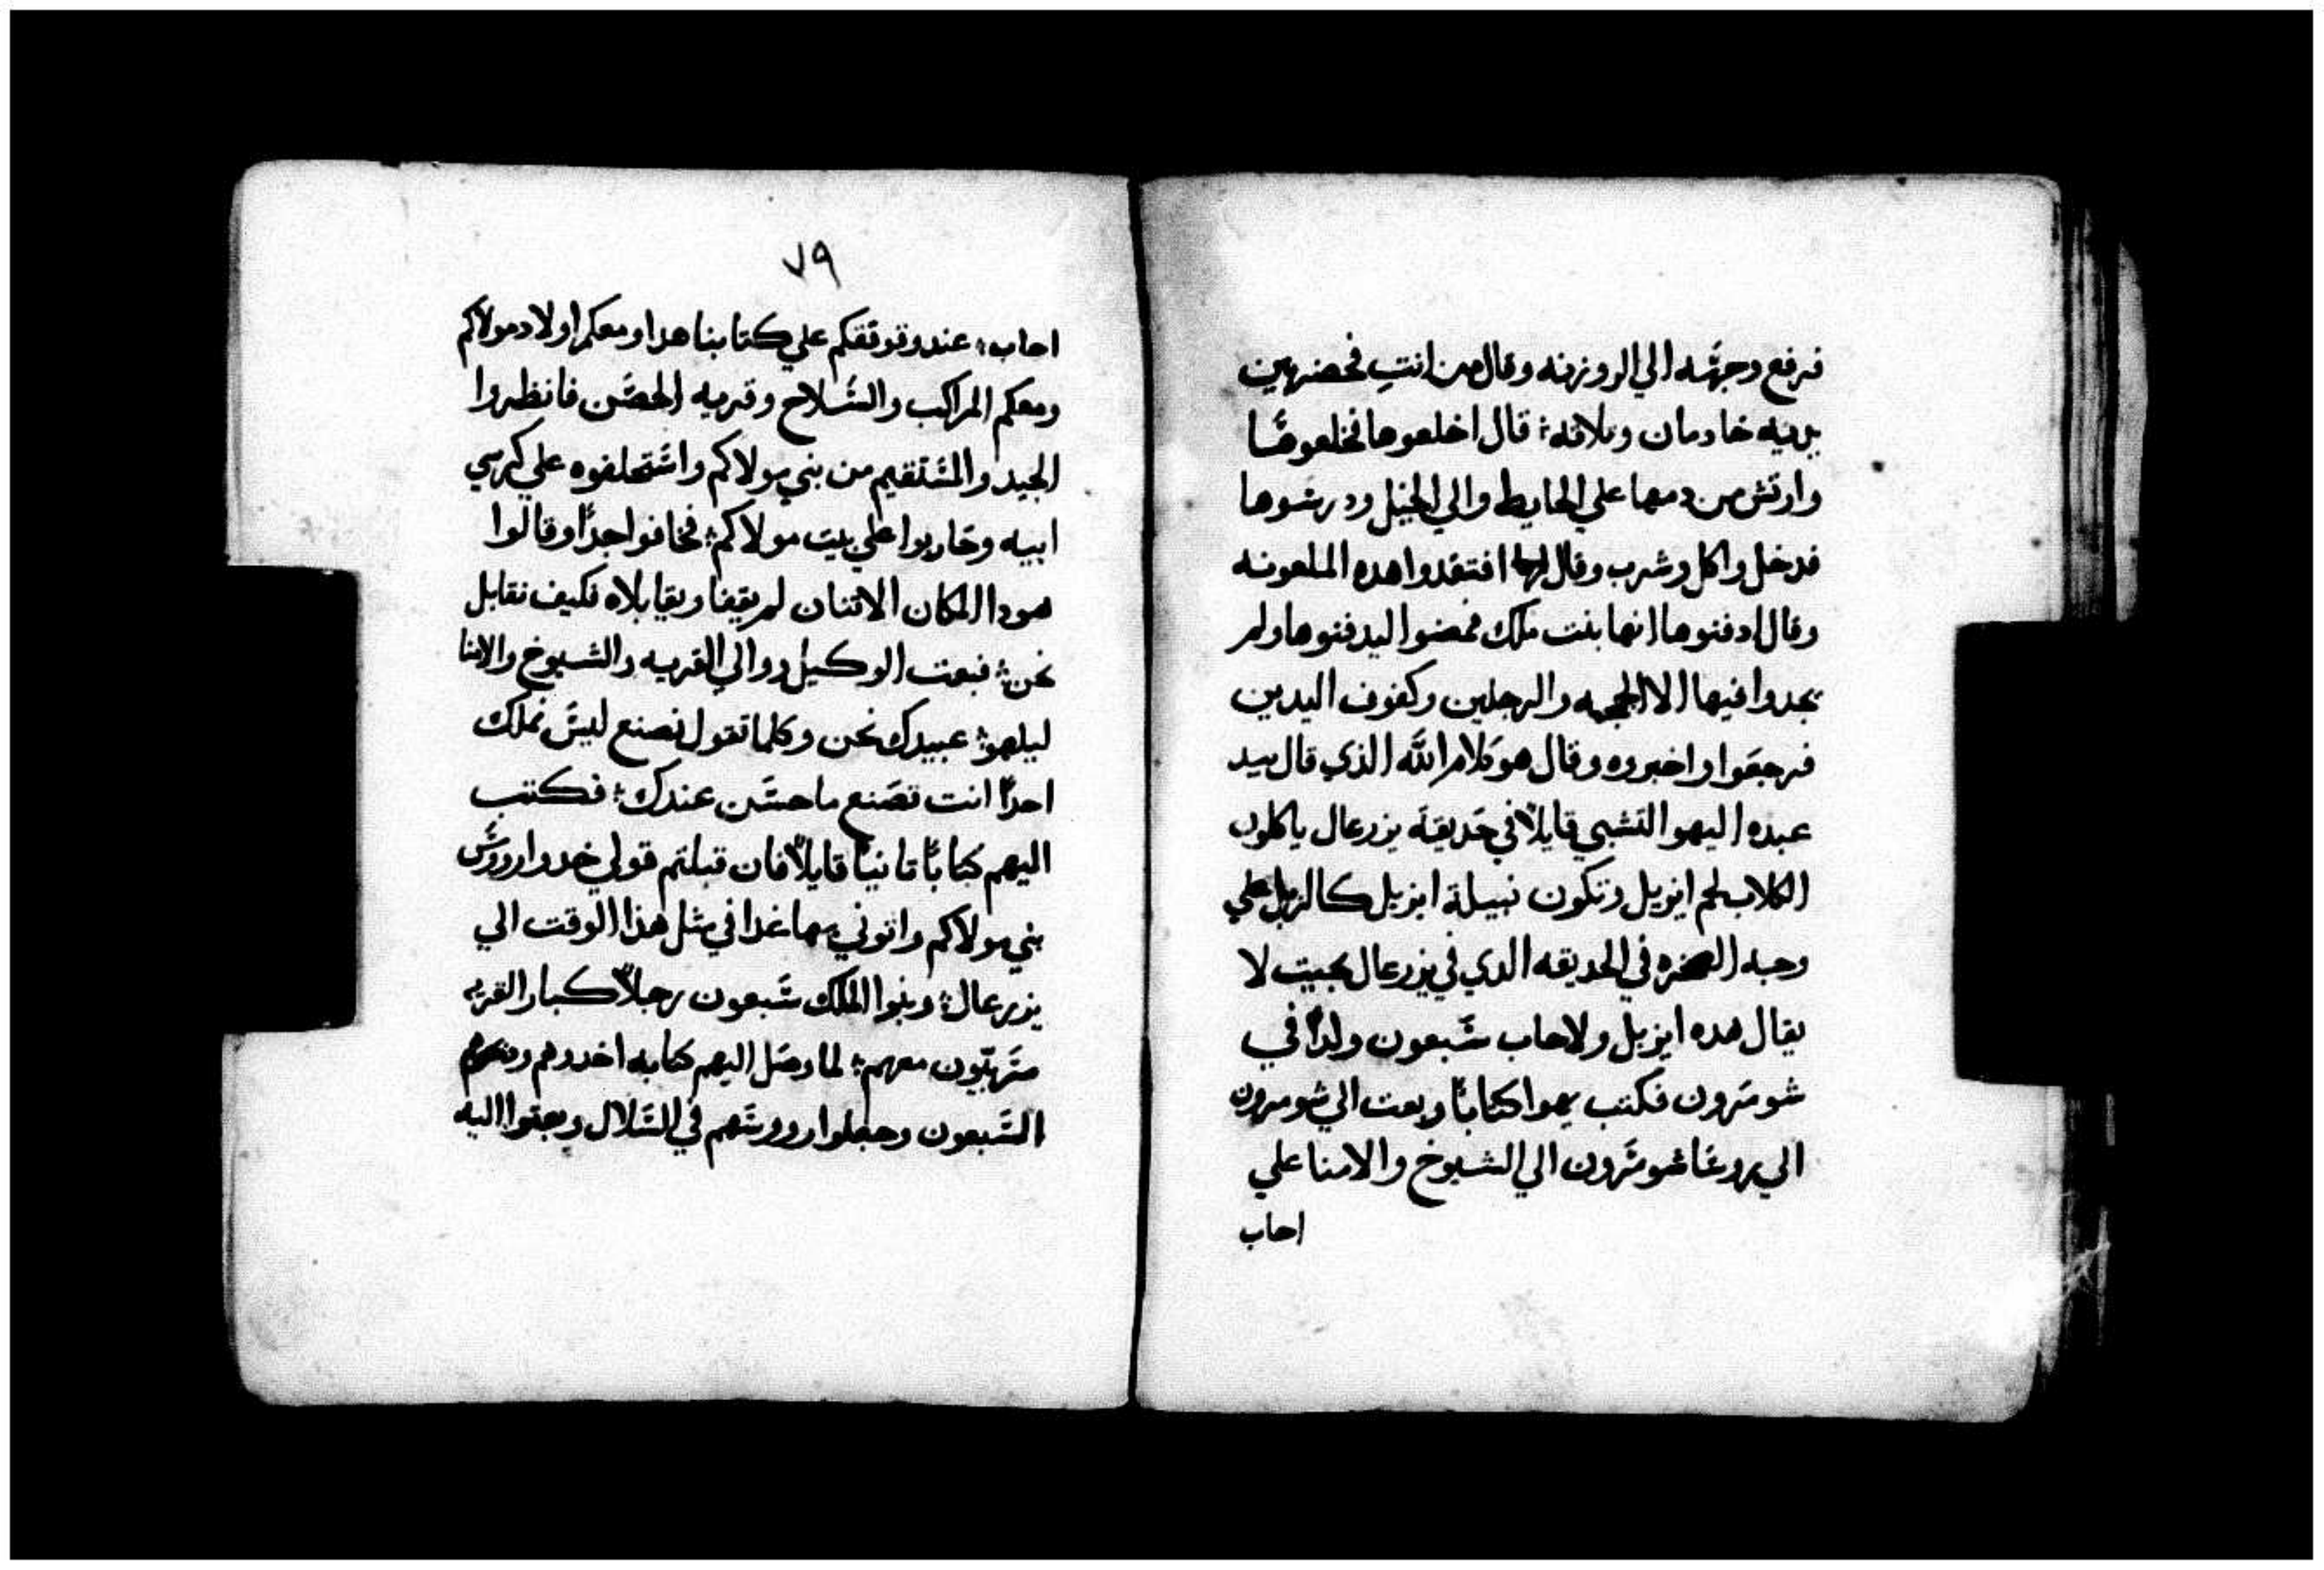 فرفع وجهه الي الروزنه وقال من انتِ فحضر بين
يديه خادمان وتلاته؛ قال اخلعوها فخلعوها
وارتش من دمها علي الحايط والي الخيل ودرسوها
فدخل واكل وشرب وقال لهم افتقدوا هده الملعونه
وقال ادفنوها انها بنت ملك فمضوا ليدفنوها ولم
يجدوا فيها الا الجمجمه والرجلين وكفوف اليدين
فرجعوا واخبروه وقال هو كلام الله الذي قال بيد
عبده اليهو التشبي قايلاً في حديقة يزرعال ياكلون
الكلاب لحم ايزبل وتكون نبيلة ايزبل كالزبل علي
وجه الصخره في الحديقه الدي في يزرعال بحيت لا
يقال هده ايزبل ولاحاب سَبعون ولداً في
شومَرون فكتب يهوا كتاباً وبعت الي شومرون
الي روسا شومَرون الي الشيوخ والامنا علي
احاب
٧٩
احاب؛ عند وقوفكم علي كتابنا هدا ومعكم اولاد مولاكم
ومعكم المراكب والسَلاح وقريه الحصَن فانظروا
الجيد والمسَتقيم من بني مولاكم واسَتحلفوه علي كرسي
ابيه وحَاربوا علي بيت مولاكم؛ فخافوا جداً وقالوا
هودا الملكان الاتنان لم يقفا ويقابلاه فكيف نقابل
نحن؛ فبعت الوكيل ووالي القريه والشيوخ والامنا
ليلهو؛ عبيدك نحن وكلما تقول نصنع ليسَ نملك
احداً انت تصَنع ما حسَن عندك؛ فكتب
اليهم كتاباً تانياً قايلاً فان قبلتم قولي خدوا رووسَ
بني مولاكم واتوني بها غدا في مثل هذا الوقت الي
يزرعال؛ وبنوا الملك سَبعون رجلاً كبار القريه
متَربّيون معهم؛ لما وصَل اليهم كتابه اخدوهم
السَبعون وجعلوا رووسَهم في السَلال وبعتوا اليه